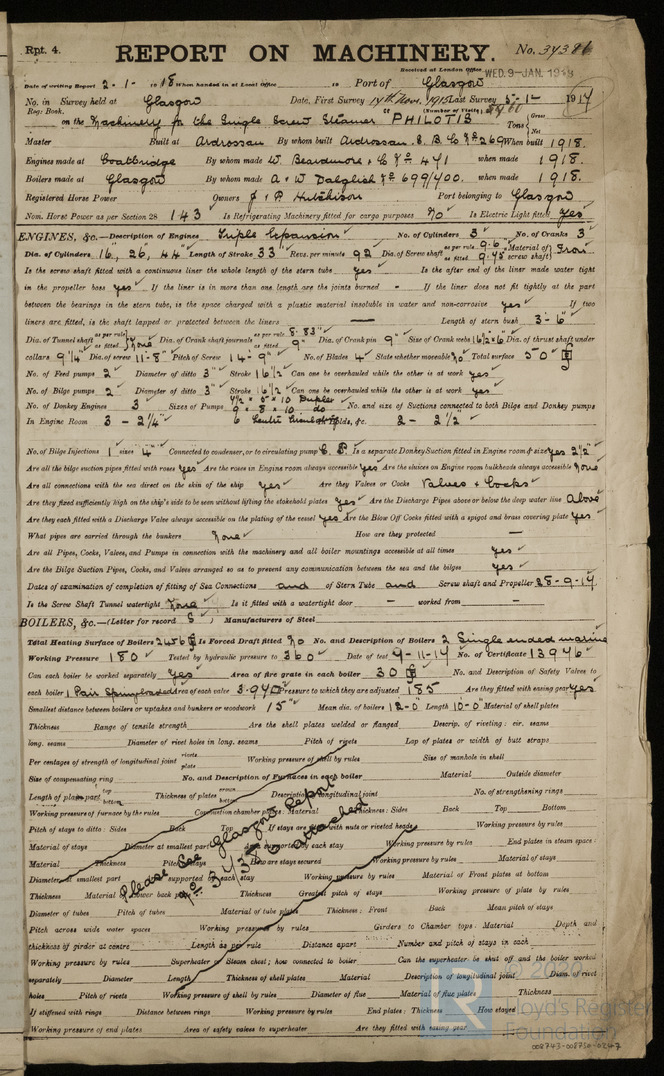 Rpt. 4. REPORT ON MACHINERY. No. 37386
Received at London Office WED. 9-JAN. 1918
Date of writing Report 2-1- 1918 When handed in at Local Office 19 Port of Glasgow
No. in Survey held at Glasgow Date, First Survey 14th Nov. 1915 Last Survey 5-1- 19
Reg. Book. (Number of Visits
on the Machinery for the Single Screw Steamer "PHILOTIS" Tons Gross Net
Master Built at Ardrossan By whom built Ardrossan S. B. Co No 269 When built 1918.
Engines made at Coatbridge By whom made W. Beardmore & Co No 471 when made 1918.
Boilers made at Glasgow By whom made A & W Dalglish No 699/700. when made 1918.
Registered Horse Power Owners J & P Hutchison Port belonging to Glasgow
Nom. Horse Power as per Section 28 143 Is Refrigerating Machinery fitted for cargo purposes No Is Electric Light fitted Yes
ENGINES, &c.—Description of Engines Triple Expansion No. of Cylinders 3 No. of Cranks 3
Dia. of Cylinders 16", 26, 44" Length of Stroke 33" Revs. per minute 92 Dia. of Screw shaft as per rule 9.6" as fitted 9.75 Material of screw shaft Iron
Is the screw shaft fitted with a continuous liner the whole length of the stern tube yes Is the after end of the liner made water tight
in the propeller boss yes If the liner is in more than one length are the joints burned - If the liner does not fit tightly at the part
between the bearings in the stern tube, is the space charged with a plastic material insoluble in water and non-corrosive yes If two
liners are fitted, is the shaft lapped or protected between the liners — Length of stern bush 3-6"
Dia. of Tunnel shaft as per rule as fitted None Dia. of Crank shaft journals as per rule 8.83" as fitted 9" Dia. of Crank pin 9" Size of Crank webs 16½x6 Dia. of thrust shaft under
collars 9¼" Dia. of screw 11-8" Pitch of Screw 14-9" No. of Blades 4 State whether moveable No Total surface 50
No. of Feed pumps 2 Diameter of ditto 3" Stroke 16½ Can one be overhauled while the other is at work yes
No. of Bilge pumps 2 Diameter of ditto 3" Stroke 16½ Can one be overhauled while the other is at work yes
No. of Donkey Engines 3 Sizes of Pumps 7½ x 5 x 10 Duplex 9 x 8 x 10 do No. and size of Suctions connected to both Bilge and Donkey pumps
In Engine Room 3 - 2¼" In Holds, &c. 2 - 2½"
No. of Bilge Injections 1 sizes 4" Connected to condenser, or to circulating pump C. P. Is a separate Donkey Suction fitted in Engine room & size yes 2½"
Are all the bilge suction pipes fitted with roses yes Are the roses in Engine room always accessible yes Are the sluices on Engine room bulkheads always accessible None
Are all connections with the sea direct on the skin of the ship yes Are they Valves or Cocks Valves & Cocks
Are they fixed sufficiently high on the ship's side to be seen without lifting the stokehold plates yes Are the Discharge Pipes above or below the deep water line Above
Are they each fitted with a Discharge Valve always accessible on the plating of the vessel yes Are the Blow Off Cocks fitted with a spigot and brass covering plate yes
What pipes are carried through the bunkers None How are they protected —
Are all Pipes, Cocks, Valves, and Pumps in connection with the machinery and all boiler mountings accessible at all times yes
Are the Bilge Suction Pipes, Cocks, and Valves arranged so as to prevent any communication between the sea and the bilges yes
Dates of examination of completion of fitting of Sea Connections and of Stern Tube and Screw shaft and Propeller 28-9-17
Is the Screw Shaft Tunnel watertight None Is it fitted with a watertight door — worked from —
BOILERS, &c.—(Letter for record S) Manufacturers of Steel
Total Heating Surface of Boilers 2456 Is Forced Draft fitted No No. and Description of Boilers 2 Single ended marine
Working Pressure 180 Tested by hydraulic pressure to 360 Date of test 9-11-17 No. of Certificate 13946
Can each boiler be worked separately Yes Area of fire grate in each boiler 30 No. and Description of Safety Valves to
each boiler 1 Pair Spring loaded Area of each valve 3.970 Pressure to which they are adjusted 185 Are they fitted with easing gear yes
Smallest distance between boilers or uptakes and bunkers or woodwork 15" Mean dia. of boilers 12-0" Length 10-0" Material of shell plates
Thickness Range of tensile strength Are the shell plates welded or flanged Descrip. of riveting: cir. seams
long. seams Diameter of rivet holes in long. seams Pitch of rivets Lap of plates or width of butt straps
Per centages of strength of longitudinal joint rivets plate Working pressure of shell by rules Size of manhole in shell
Size of compensating ring No. and Description of Furnaces in each boiler Material Outside diameter
Length of plain part top bottom Thickness of plates crown bottom Description of longitudinal joint No. of strengthening rings
Working pressure of furnace by the rules Combustion chamber plates: Material Thickness: Sides Back Top Bottom
Pitch of stays to ditto: Sides Back Top If stays are fitted with nuts or riveted heads Working pressure by rules
Material of stays Diameter at smallest part Area supported by each stay Working pressure by rules End plates in steam space:
Material Thickness Pitch of stays How are stays secured Working pressure by rules Material of stays
Diameter at smallest part supported by each stay Working pressure by rules Material of Front plates at bottom
Thickness Material of Lower back plate Thickness Greatest pitch of stays Working pressure of plate by rules
Diameter of tubes Pitch of tubes Material of tube plates Thickness: Front Back Mean pitch of stays
Pitch across wide water spaces Working pressures by rules Girders to Chamber tops: Material Depth and
thickness of girder at centre Length as per rule Distance apart Number and pitch of stays in each
Working pressure by rules Superheater or Steam chest; how connected to boiler Can the superheater be shut off and the boiler worked
separately Diameter Length Thickness of shell plates Material Description of longitudinal joint Diam. of rivet
holes Pitch of rivets Working pressure of shell by rules Diameter of flue Material of flue plates Thickness
If stiffened with rings Distance between rings Working pressure by rules End plates: Thickness How stayed
Working pressure of end plates Area of safety valves to superheater Are they fitted with easing gear
Please see Glasgow Report
No 37386 attached
Lloyd's Register
Foundation
008743-008750-0247